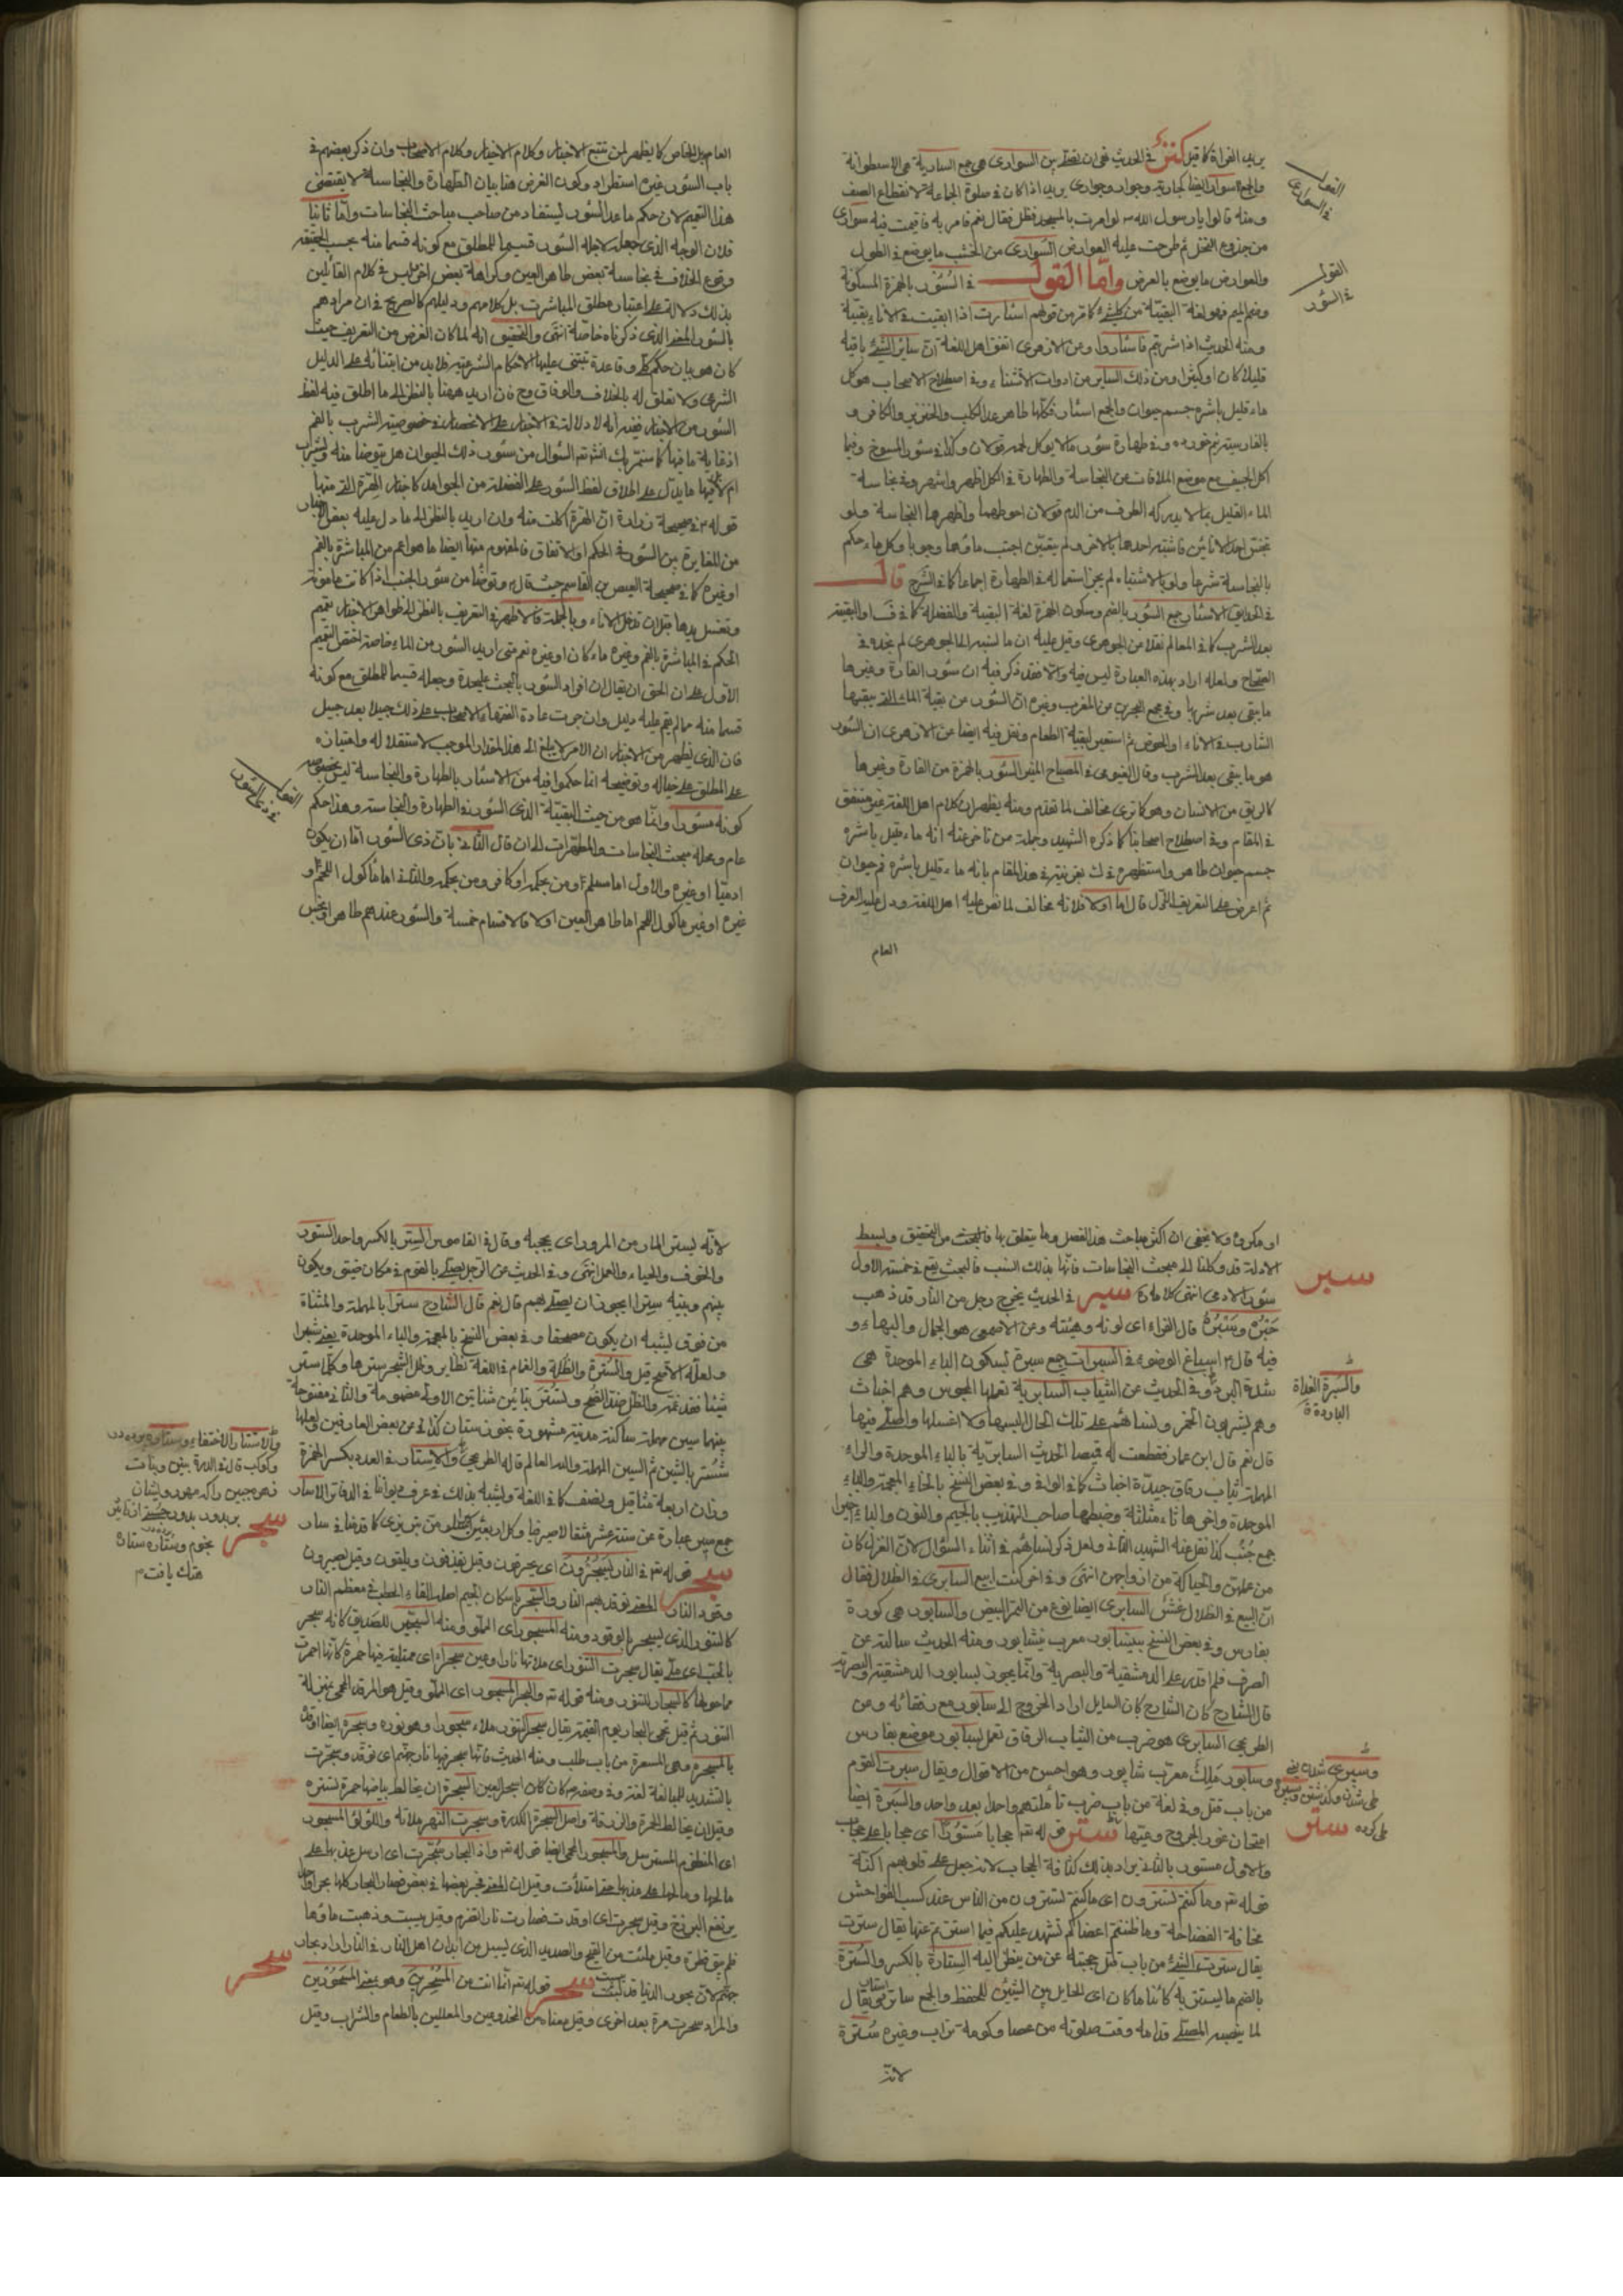 يريد القراءة كما قيل
في الحديث في ان تصلي بين السواري هي جمع السارية هي الاسطوانة
والجمع سوار ايضا كجارية وجوار وجواري يريد اذا كان في صلوة الجماعة لانقطاع الصف
ومنه قالوا يا رسول الله لو امرت بالمسجد فظلل فقال نعم فامر به فاقيمت فيه سواري
من جذوع النخل ثم طرحت عليه العوارض السواري من الخشب ما يوضع في الطول
والعوارض ما يوضع بالعرض واما القول في السؤر بالهمزة المسكونة
القول في السواري
القول في السؤر
وضم الميم فهو لغة البقية من كل شيء كما قر من قولهم اسئارت اذا ابقيت في الاناء بقية
ومنه الحديث اذا شربتم فاسئاروا وعن الازهري اتفق اهل اللغة ان سائر الشيء باقيه
قليلا كان او كثيرا ومن ذلك السائر من ادوات الاستثناء وفي اصطلاح الاصحاب هو كل
ماء قليل باشره جسم حيوان والجمع اسئار فكلها طاهر عدا الكلب والخنزير والكافر و
بالفارسية نيم خورده وفي طهارة سؤر ما لا يؤكل لحمه قولان وكذا في سؤر المسوخ وفيما
اكل الجيف مع موضع الملاقات من النجاسة والطهارة في الكل اظهر واشهر وفي نجاسة
الماء القليل بما لا يدركه الطرف من الدم قولان احوطهما واظهرهما النجاسة ولو
نجس احد الانائين فاشتبه احدهما بالاخر ولم يتعين اجتنب ماؤهما وجوبا وكل ماء حكم
بالنجاسة شرعا ولو بالاشتباه لم يجز استعماله في الطهارة اجماعا كما في الشرح قال
في الحدايق الاسئار جمع السؤر بالضم وسكون الهمزة لغة البقية والفضلة كما في ق او البقية
بعد الشرب كما في المعالم نقلا من الجوهري وقيل عليه ان ما نسبه الى الجوهري لم نجده في
الصحاح ولعله اراد بهذه العبارة ليس فيه والا فقد ذكر فيه ان سؤر الفارة وغيرها
ما يبقى بعد شربها وفي مجمع البحرين عن المغرب وغيره ان السؤر من بقية الماء التي يبقيها
الشارب في الاناء او الحوض ثم استعير لبقية الطعام ونقل فيه ايضا عن الازهري ان السؤر
هو ما يبقى بعد الشرب وقال الفيومي في المصباح المنير السؤر بالهمزة من الفارة وغيرها
كالريق من الانسان وهو كما ترى مخالف لما تقدم ومنه يظهر ان كلام اهل اللغة غير متفق
في المقام وفي اصطلاح اصحابنا كما ذكره الشهيد وجملة ممن تاخر عنه انه ماء قليل باشره
جسم حيوان طاهر واستظهر في لك تعريفه في هذا المقام بانه ماء قليل باشره فم حيوان
ثم اعرض على التعريف الاول قال اما اولا فلانه مخالف لما نص عليه اهل اللغة ودل عليه العرف
العام
العام بل الخاص كما يظهر لمن تتبع الاخبار وكلام الاخيار وكلام الاصحاب وان ذكر بعضهم في
باب السؤر غيره استطراد وكون الغرض هنا بيان الطهارة والنجاسة لا يقتضي
هذا التعميم لان حكم ما عدا السؤر يستفاد من صاحب مباحث النجاسات واما ثانيا
فلان الوجه الذي جعل لاجله السؤر قسيما للمطلق مع كونه قسما منه بحسب الحقيقة
وقوع الخلاف في نجاسة بعض طاهر العين وكراهة بعض اخر وليس في كلام القائلين
بذلك دلالة على اعتبار مطلق المباشرة بل كلامهم ودليلهم كالصريح في ان مرادهم
بالسؤر المعنى الذي ذكرناه خاصة انتهى والتحقيق انه لما كان الغرض من التعريف حيث
كان هو بيان حكم كلي وقاعدة تبتنى عليها الاحكام الشرعية فلابد من ابتنائه على الدليل
الشرعي ولا تعلق له بالخلاف والوفاق وح فان اريد ههنا بالنظر الى ما اطلق فيه لفظ
السؤر من الاخبار فغير انه لا دلالة في الاخبار على الانحصار في خصوصية الشرب بالفم
اذ غاية ما فيها كما ستمر بك انشاء تم السؤال من سؤر ذلك الحيوان هل يتوضا منه ويشرب
ام لا فيها ما يدل على اطلاق لفظ السؤر على الفضلة من الجوامد كاخبار الهرة التي منها
قوله في صحيحة زرارة ان الهرة اكلت منه وان اريد بالنظر الى ما دل عليه بعض الاخبار
من المغايرة بين السؤر في الحكم او الاتفاق فالمفهوم منها ايضا ما هو اعم من المباشرة بالفم
او غيره كما في صحيحة العيص بن القاسم حيث قال وتوضا من سؤر الجنب اذا كانت مامونة
وتغسل يدها قبل ان تدخل الاناء وبالجملة فالاظهر في التعريف بالنظر الى ظواهر الاخبار تعميم
الحكم في المباشرة بالفم وغيره ماء كان او غيره نعم متى اريد السؤر من الماء خاصة اختص التعميم
الاول على ان الحق ان يقال ان افراد السؤر بالبحث عليحدة وجعله قسيما للمطلق مع كونه
قسما منه مما لم يقم عليه دليل وان جرت عادة الفقهاء الاصحاب على ذلك جيلا بعد جيل
فان الذي يظهر من الاخبار ان الامر لا يبلغ الى هذا المقدار الموجب لاستقلاله وامتيازه
على المطلق على حياله وتوضيحه انما حكموا فيه من الاسئار بالطهارة والنجاسة ليس بخصوصه
القول في ذي السؤر
كونه سؤرا وانما هو من حيث البقية الذي السؤر في الطهارة والنجاسة وهذا حكم
عام ومحله مبحث النجاسات والمطهرات الى ان قال الثاني بان ذي السؤر اما ان يكون
ادميا او غيره والاول اما مسلم او من بحكمه او كافر ومن بحكمه والثاني اما ماكول اللحم او
غيره او غير ماكول اللحم اما طاهر العين او لا فالاقسام خمسة والسؤر عندهم طاهر او نجس
او مكروه ولا يخفى ان اكثر مباحث هذا الفصل وما يتعلق بها فالبحث من التحقيق وبسط
سبر
الادلة قد وكلنا الى مبحث النجاسات فانها بذلك انسب فالبحث يقع في خمسة الاول
سؤر الادمي انتهى كلامه سبر في الحديث يخرج رجل من النار قد ذهب
حبره وسبره قال الفراء اي لونه وهيئته وعن الاصمعي هو الجمال والبهاء و
فيه قال اسباغ الوضوء في السبرات جمع سبرة بسكون الباء الموحدة هي
والسبرة الغداة
الباردة
شدة البرد وفي الحديث عن الثياب السابرية تعملها المجوس وهم اخباث
وهم يشربون الخمر ونساؤهم على تلك الحال البسها ولا اغسلها واصلي فيها
قال نعم قال ابن عمار فقطعت له قميصا الحديث السابرية بالباء الموحدة والراء
المهملة ثياب رقاق جيدة اخباث كما في الوافي وفي بعض النسخ بالخاء المعجمة والباء
الموحدة واخرها ثاء مثلثة وضبطها صاحب التهذيب بالجيم والنون والباء اخيرا
جمع جنب كذا نقل عنه الشهيد الثاني ولعل ذكر نسائهم في اثناء السؤال لان الغزل كان
من عملهن والحياكة من ازواجهن انتهى وفي اخر كنت ابيع السابري في الظلال فقال
ان البيع في الظلال غش السابري ايضا نوع من التمر البيض والسابور هي كورة
بفارس وفي بعض النسخ بيسابور معرب نيشابور ومنه الحديث سالته عن
الصرف فلم اقدر على الدمشقية والبصرية وانما يجوز بسابور الدمشقية والبصرية
قال الشارح كان الشارح كان السايل اراد الخروج الى سابور مع رفقائه ومن
الطريحي السابري هو ضرب من الثياب الرقاق تعمل بسابور موضع بفارس
وسابور ملك معرب شاپور وهو احسن من الاقوال ويقال سبرت القوم
من باب قتل وفي لغة من باب ضرب تاملتهم واحدا بعد واحد والسبرة ايضا
امتحان غور الجروح وعمقها ستر قوله تم حجابا مستورا اي حجابا على حجاب
ستر
والاول مستور بالثاني يراد بذلك كثافة الحجاب لانه جعل على قلوبهم اكنة
قوله تم وما كنتم تستترون اي ما كنتم تستترون من الناس عند كسب الفواحش
مخافة الفضاحة وما ظننتم اعضائكم تشهد عليكم فيما استترتم عنها يقال سترت
يقال سترت الشيء من باب قتل حجبته عن من ينظر اليه الستارة بالكسر والسترة
بالضم ما يستتر به كائنا ما كان اي الحايل بين الشيئين للحفظ والجمع ستائر ويقال
لما ينصبه المصلي قدامه وقت صلوته من عصا وكومة تراب وغيره سترة
لانه
لانه يستر المار من المرور اي يحجبه وقال في القاموس الستر بالكسر واحد الستور
والخوف والحياء والعمل انتهى وفي الحديث عن الرجل يصلي بالقوم في مكان ضيق ويكون
بينهم وبينه ستر ايجوز ان يصلي بهم قال نعم قال الشارح سترا بالمهملة والمثناة
من فوق يشبه ان يكون مصحفا وفي بعض النسخ بالمعجمة والباء الموحدة يعني شبرا
ولعله الاصح قيل والسترة والظلة والغمام في اللغة نظاير وظل الشجر سترها وكلما ستر
شيئا فقد غمه والظل ضد الضح وتستر بتائين مثناتين الاولى مضمومة والثاني مفتوحة
بينهما سين مهملة ساكنة مدينة مشهورة بخوزستان كذا في عن بعض العارفين ولعلها
شستر بالشين ثم السين المهملة والله العالم قاله الطريحي والاستار في العدد بكسر الهمزة
وزان اربعة مثاقيل ونصف كما في اللغة ويشبه بذلك في عرف ديواننا في الدفاتر الاستار
جمع سير عبارة عن ستة عشر مثقالا صيرفيا
سجر
قوله تم في النار يسجرون اي يحرقون وقيل يقذفون ويلقون وقيل يصيرون
وقود النار المعنى توقد بهم النار والسجر باسكان الجيم اصله القاء الحطب في معظم النار
كالتنور الذي يسجر بالوقود ومنه المسجور اي المملو ومنه السجير للصديق كانه سجر
بالحب اي ملئ يقال سجرت التنور اي ملاتها نارا وعين سجراء اي ممتلية فيها حمرة كانها احمرت
مما حولها كالسجار للتنور ومنه قوله تم والبحر المسجور اي المملو وقيل هو الموقد المحمي بمنزلة
التنور ثم قيل تحمى البحار يوم القيمة يقال سجر التنور ملاء سجورا وهو نوره وسجره ايضا اوقده
بالمسجرة وهي المسعرة من باب طلب ومنه الحديث فانها سجر فيها نار جهنم اي توقد وسجرت
بالتشديد للمبالغة لغة وفي وصفه كان كان اسجر العين السجرة ان يخالط بياضها حمرة يسيرة
وقيل ان يخالط الحمرة والزرقة واصل السجرة الكدرة وسجرت النهر ملاته واللؤلؤ المسجور
اي المنظوم المسترسل والمسجور المحمي ايضا قوله تم واذا البحار سجرت اي ارسل عذبها على
مالحها ومالحها على عذبها حتى امتلات وقيل ان المعنى فجر بعضها في بعض فصار البحار كلها بحرا واحدا
يرتفع البرزخ وقيل سجرت اي اوقدت فصارت نارا تضرم وقيل يبست وذهبت ماؤها
فلم يبق قطرة وقيل ملئت من القيح والصديد الذي يسيل من ابدان اهل النار في النار اراد بحار
جهنم لان بحور الدنيا قد يبست سحر قوله تم انما انت من المسحرين وهو بمعنى المسحورين
سحر
والمراد سحرت مرة بعد اخرى وقيل معناه من المخدوعين والمعللين بالطعام والشراب وقيل